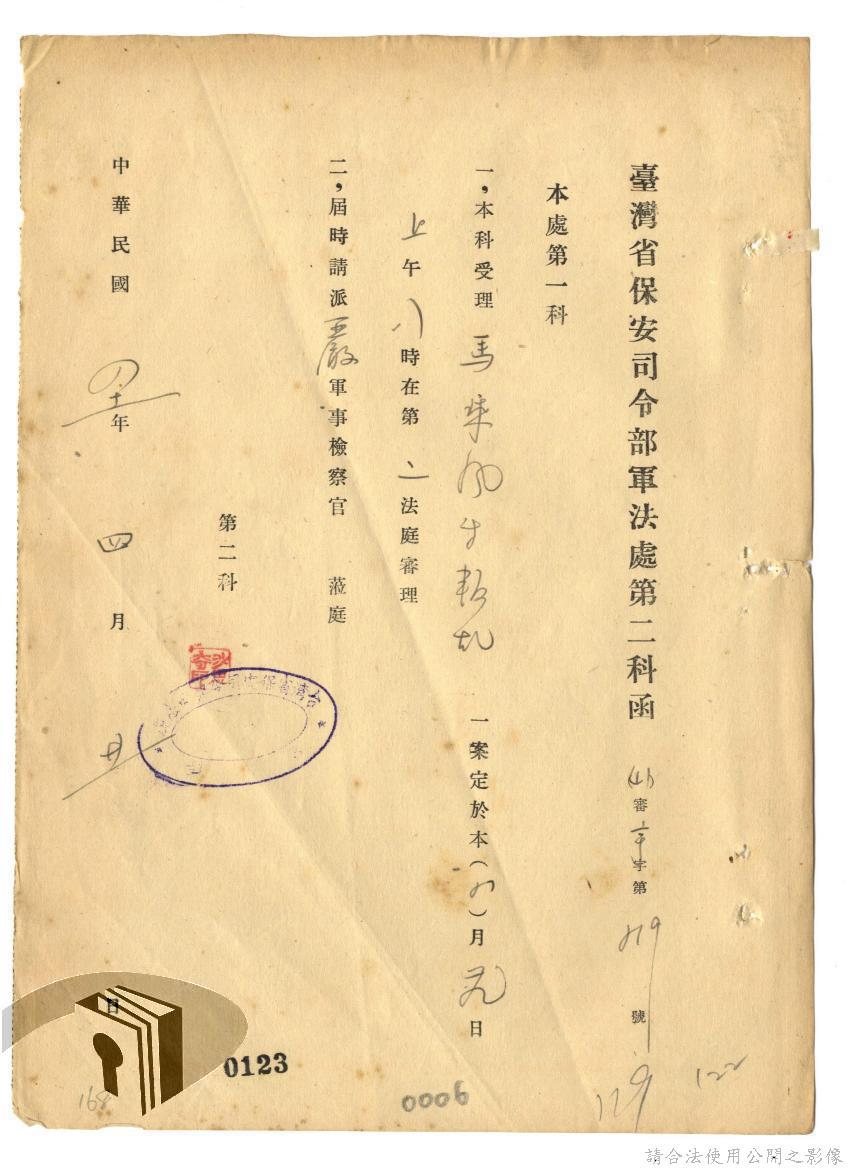 臺灣省保安司令部軍法處第二科函 (41)審字第號
本處第一科
一，本科受理馬朱 叛亂一案定於本(四)月日
上午八時在第二法庭審理
二，屆時請派嚴軍事檢察官 蒞庭
第二科
中華民國四十一年四月廿日
0123
0006
168
119
122
請合法使用公開之影像